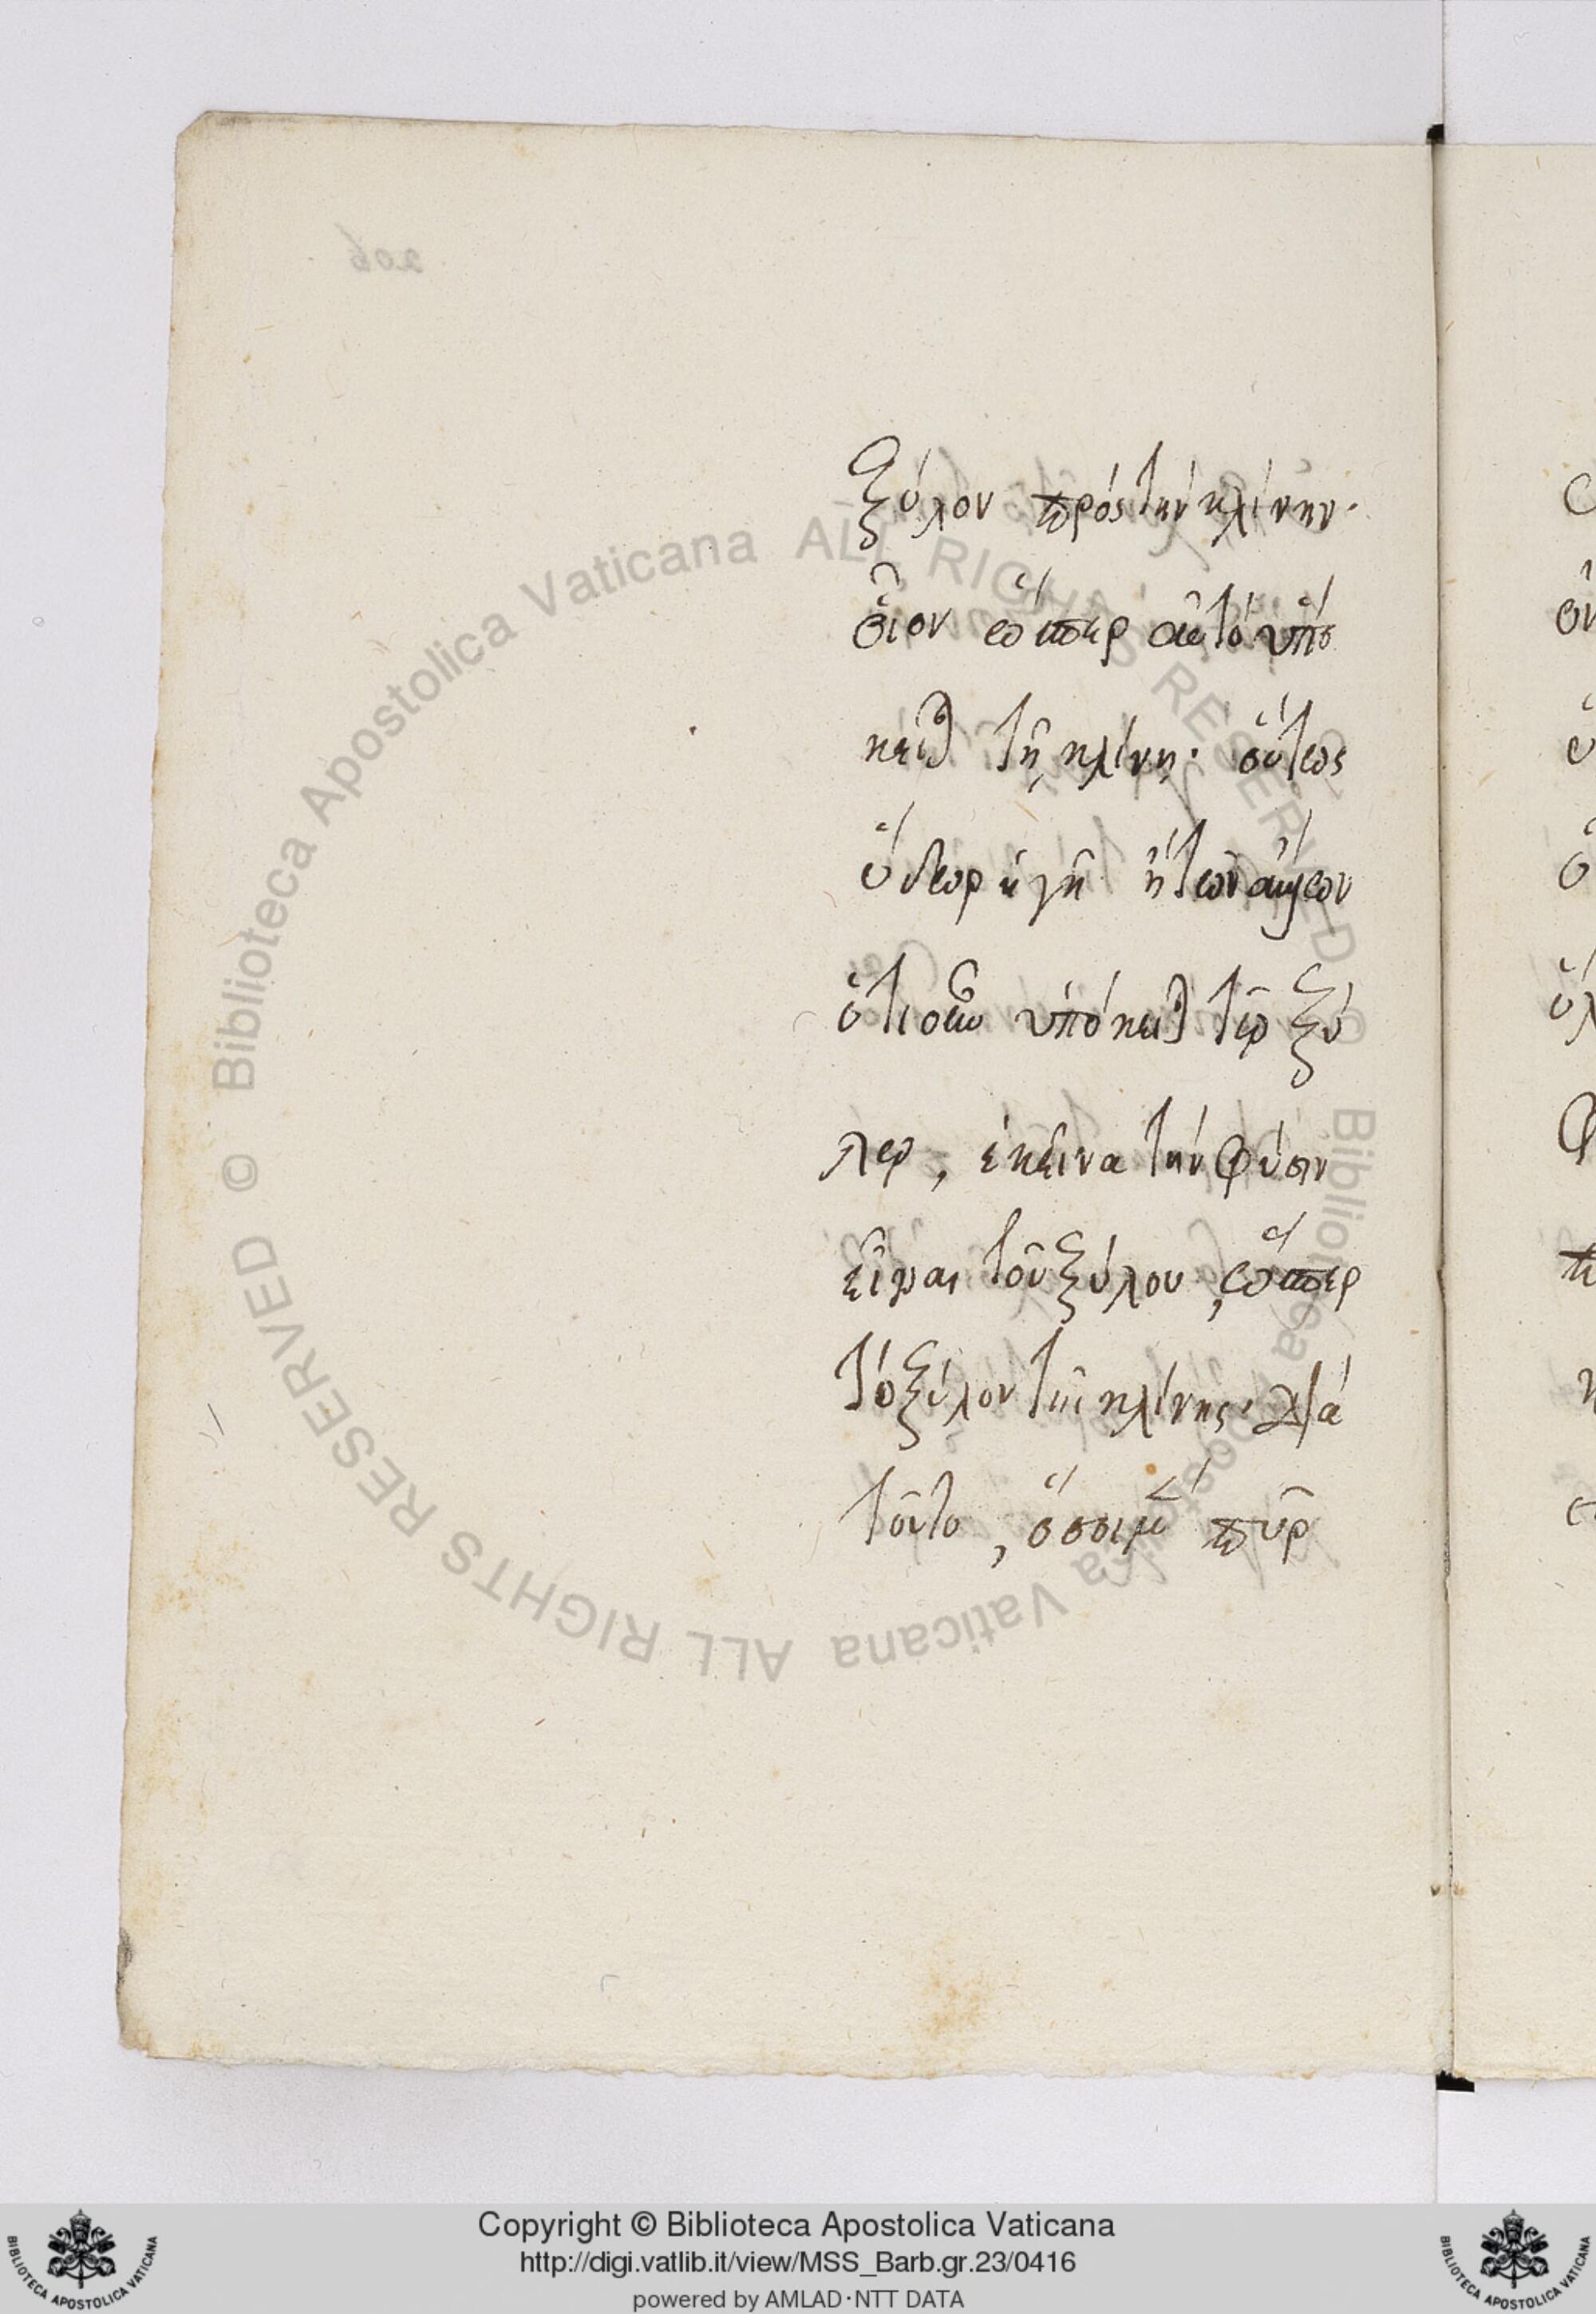 ξύλον πρὸς τὴν κλίνην·
οἷον ὥσπερ αὐτὸ ὑπό
κειται τῇ κλίνῃ· οὕτως
ὕδωρ ἢ γῆ ἢ τῶν ἄλλων
ὁτιοῦν ὑπόκειται τῷ ξύ
λῳ, ἐκεῖνα τὴν φύσιν
εἶναι τοῦ ξύλου, ὥσπερ
τὸ ξύλον τῆς κλίνης· διὰ
τοῦτο, ὅσοι μὲν πῦρ
© Biblioteca Apostolica Vaticana ALL RIGHTS RESERVED © Biblioteca Apostolica Vaticana ALL RIGHTS RESERVED
Copyright © Biblioteca Apostolica Vaticana
http://digi.vatlib.it/view/MSS_Barb.gr.23/0416
powered by AMLAD·NTT DATA
BIBLIOTECA APOSTOLICA VATICANA
BIBLIOTECA APOSTOLICA VATICANA